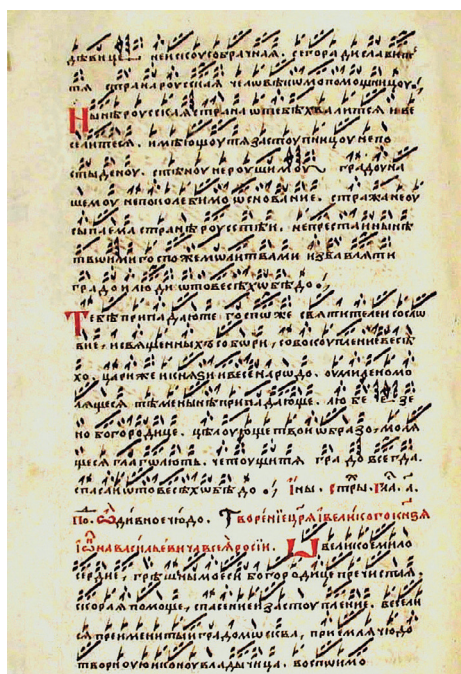 дѣвице неискоусобрачная. сегоради славите
тя странароусская челѡвѣкѡмопомощницоу.
Нынѣроусскаястрана ѡтебѣхвалитсѧ иве
селитесѧ. имѣющоутѧзастоупницоу непо
стыденоу. стѣноу нероушимоу градоуна
шемоу непоколебимо ѡснование. стражанеоу
сыпаема странѣ роусстѣи. непрестаннынѣ
твоимигоспожемѡлитвами избавлѧти
градоилюди ѡтовесѣхѡбѣдо.
Тебѣприпадаюте госпѡже свѧтителеисослѡ
вие, исвѧщенныхъсобѡри, совокоуплениевесѣ
хо. царижеикнѧзиивесенарѡдо. оумиденомо
лѧщесѧ тѣменынѣприпадающе. любе зе
но богородице. цѣлоующетвоиѡбразо, молѧ
щесѧ глагѡлють. четоущитѧ градо всегда.
спасаи ѡтовесѣхѡбѣдо. Ины. стры. Гла. д҃.
По. Ѡдивноечюдо. Творениецрѧивеликогокнѕѧ
іѡ̑навасильевичавсеѧросии. Ѡвеликоемило
сердие, грѣшнымоеси богородицепречистая.
скораяпомоще, спасениеизастоупление. весели
сѧпреименитыиградомѡсква, приемлѧчюдо
творноуюиконоувладычица. воспѡимо